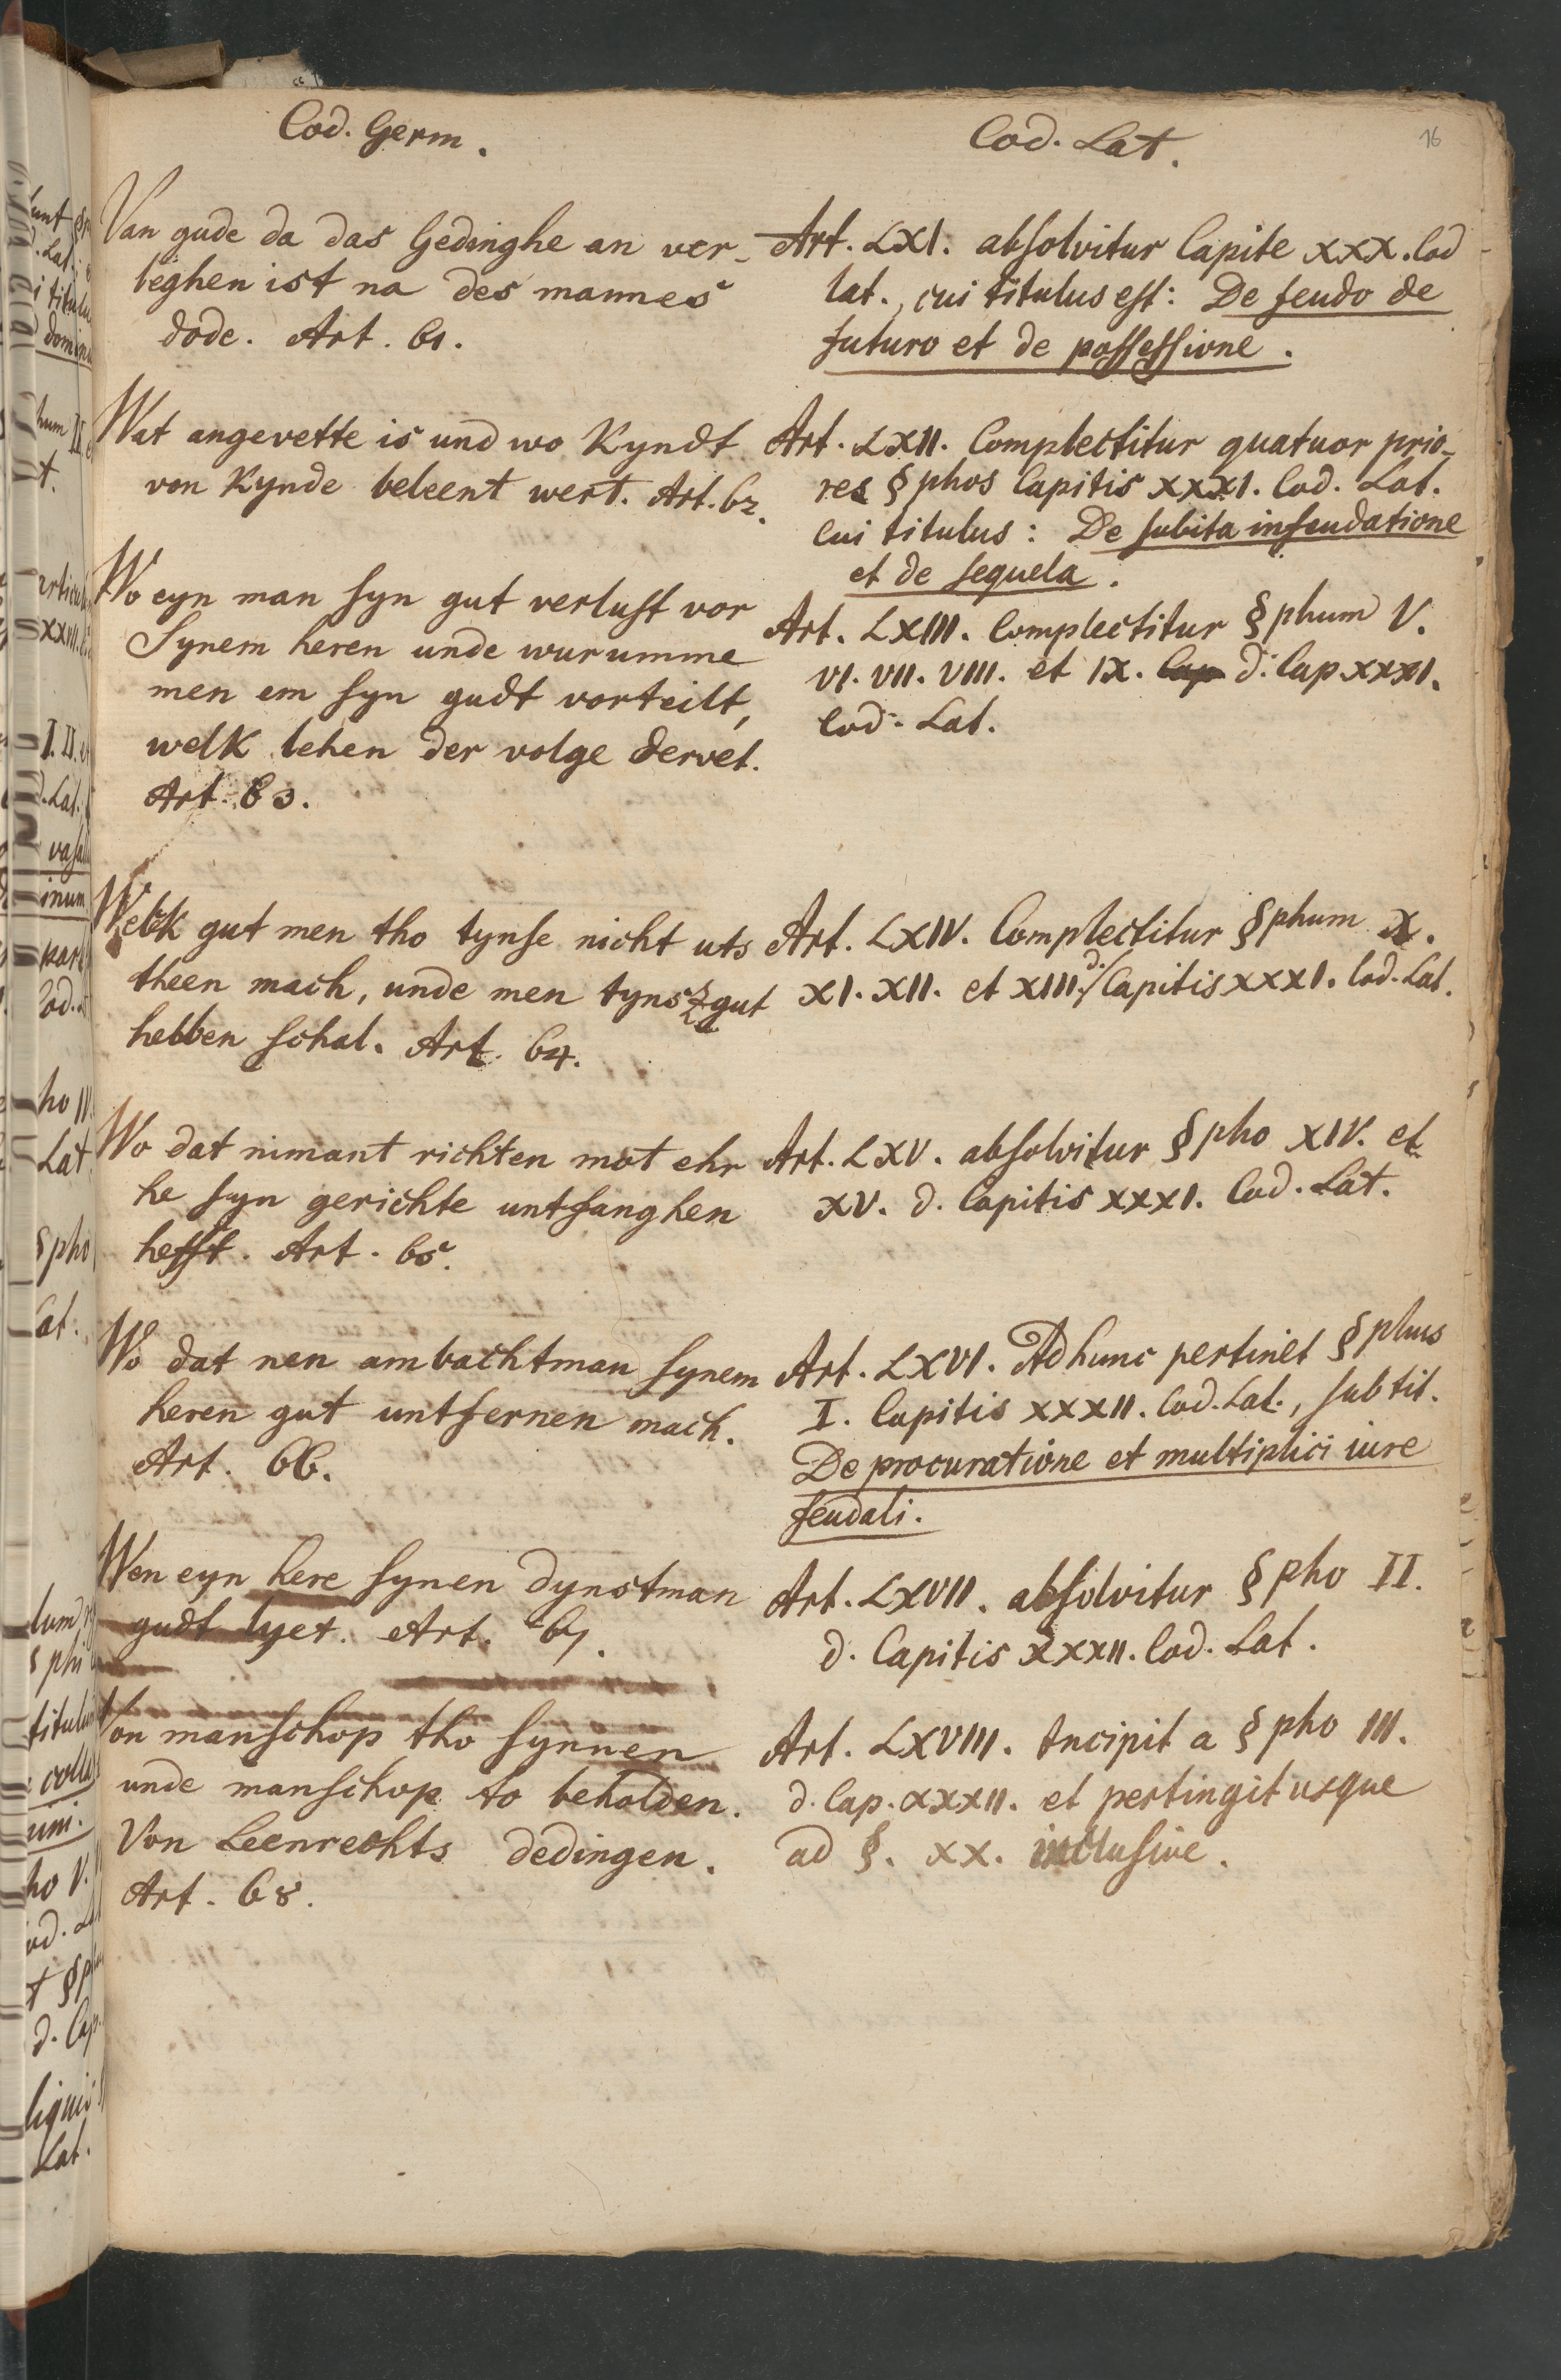 16
Cod. Germ.
Van gude da das Gedinghe an ver-
leghen ist na des mannes
dode. Art. 61.
Wat angevette is und wo Kyndt
von Kynde beleent wert. Art. 62.
Wo eyn man syn gut verlust vor
Synem heren unde wurumme
men em syn gudt vorteilt,
welk lehen der volge dervet.
Art. 63.
Welk gut men tho tynse nicht uts
theen mach, unde men tyns gut
hebben schal. Art. 64.
Wo dat nimant richten mot ehr
he syn gerichte untfanghen
hefft. Art. 65.
Wo dat nen ambachtman synem
heren gut untfernen mach.
Art. 66.
Wen eyn here synen dynstman
gudt lyet. Art. 67.
Von manschop tho synnen
unde manschop to beholden.
Von Leenrechts dedingen.
Art. 68.
Cod. Lat.
Art. LXI. absolvitur Capite XXX. Cod
lat., cui titulus est: De feudo de
futuro et de possessione.
Art. LXII. Complectitur quatuor prio-
res §phos Capitis XXXI. Cod. Lat.
cui titulus: De subita infeudatione
et de sequela.
Art. LXIII. Complectitur §phum V.
VI. VII. VIII. et IX. Cap d. Cap. XXXI.
Cod. Lat.
Art. LXIV. Complectitur §phum X.
XI. XII. et XIII. d. Capitis XXXI. Cod. Lat.
Art. LXV. absolvitur §pho XIV. et
XV. d. Capitis XXXI. Cod. Lat.
Art. LXVI. Ad hunc pertinet §phus
I. Capitis XXXII. Cod. Lat., sub tit.
De procuratione et multiplici iure
feudali.
Art. LXVII. absolvitur §pho II.
d. Capitis XXXII. Cod. Lat.
Art. LXVIII. Incipit a §pho III.
d. Cap. XXXII. et pertingit usque
ad §. XX. inclusive.